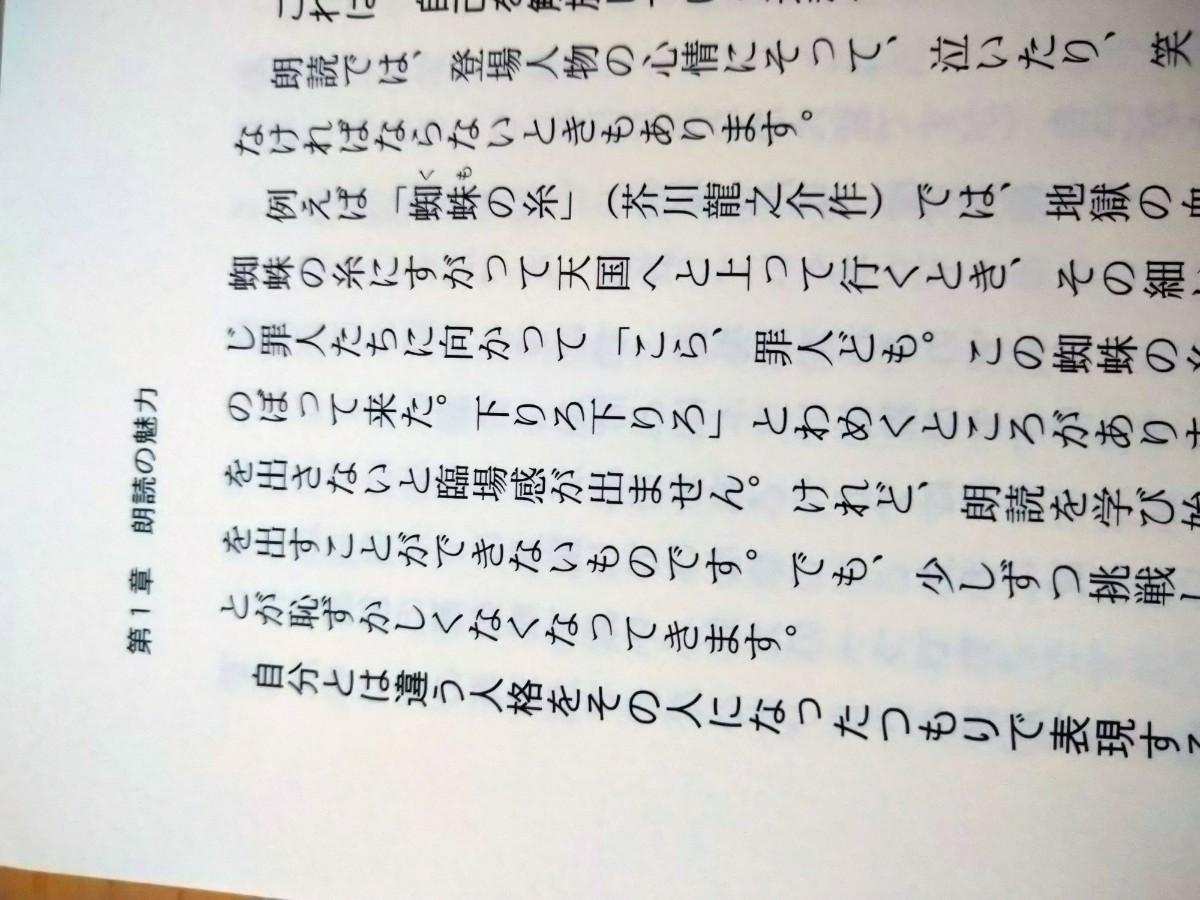 第1章 朗読の魅力
これは 自己を解放して
朗読では、登場人物の心情にそって、泣いたり、笑
なければならないときもあります。
例えば「蜘蛛の糸」（芥川龍之介作）では、地獄の血
蜘蛛の糸にすがって天国へと上って行くとき、その細い
じ罪人たちに向かって「こら、罪人ども。この蜘蛛の
のぼって来た。下りろ下りろ」とわめくところがあります
を出さないと臨場感が出ません。けれど、朗読を学び始
を出すことができないものです。でも、少しずつ挑戦し
とが恥ずかしくなくなってきます。
自分とは違う人格をその人になったつもりで表現する